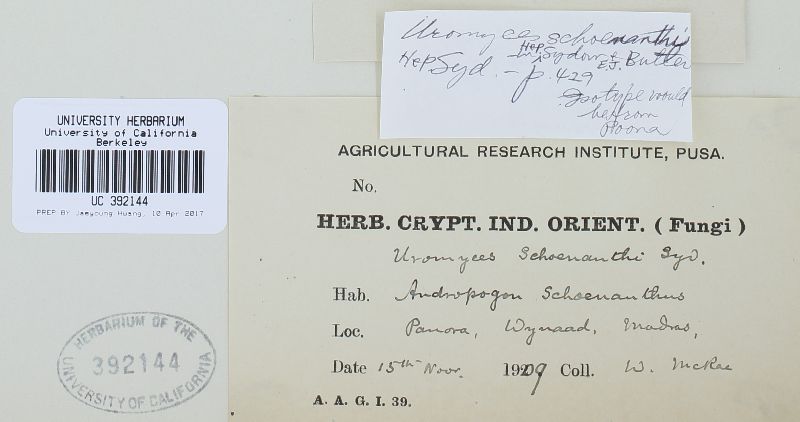 Uromyces schoenanthi
HePSyd. - in HePSydow & E.J. Butler
p. 429
Isotype would
be from
Poona
UNIVERSITY HERBARIUM
University of California
Berkeley
UC 392144
PREP BY Jaeyoung Huang, 10 Apr 2017
AGRICULTURAL RESEARCH INSTITUTE, PUSA.
No.
HERB. CRYPT. IND. ORIENT. ( Fungi )
Uromyces Schoenanthi Syd.
Hab. Andropogon Schoenanthus
Loc. Panora, Wynaad, Madras,
Date 15th Novr. 1909 Coll. W. McRae
A. A. G. I. 39.
HERBARIUM OF THE
392144
UNIVERSITY OF CALIFORNIA